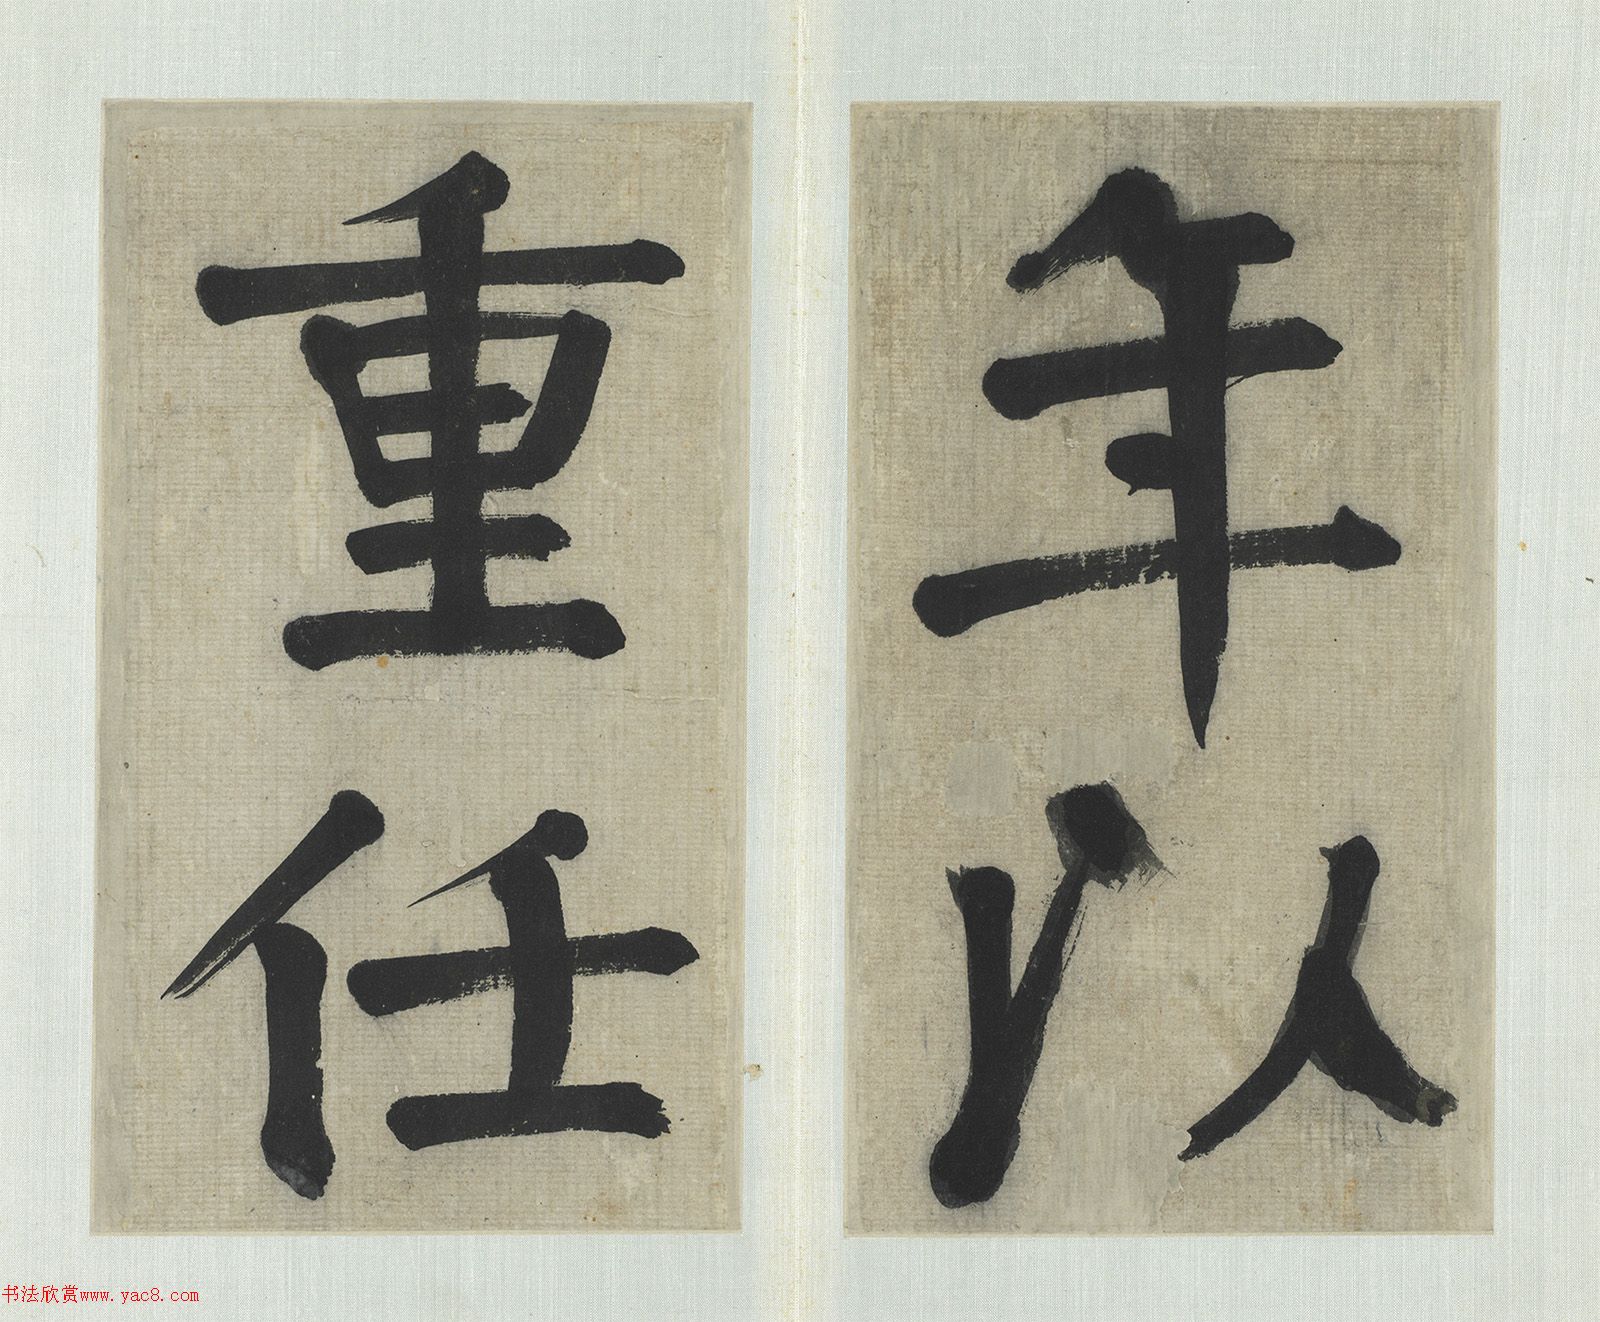 年以
重任
书法欣赏www.yac8.com